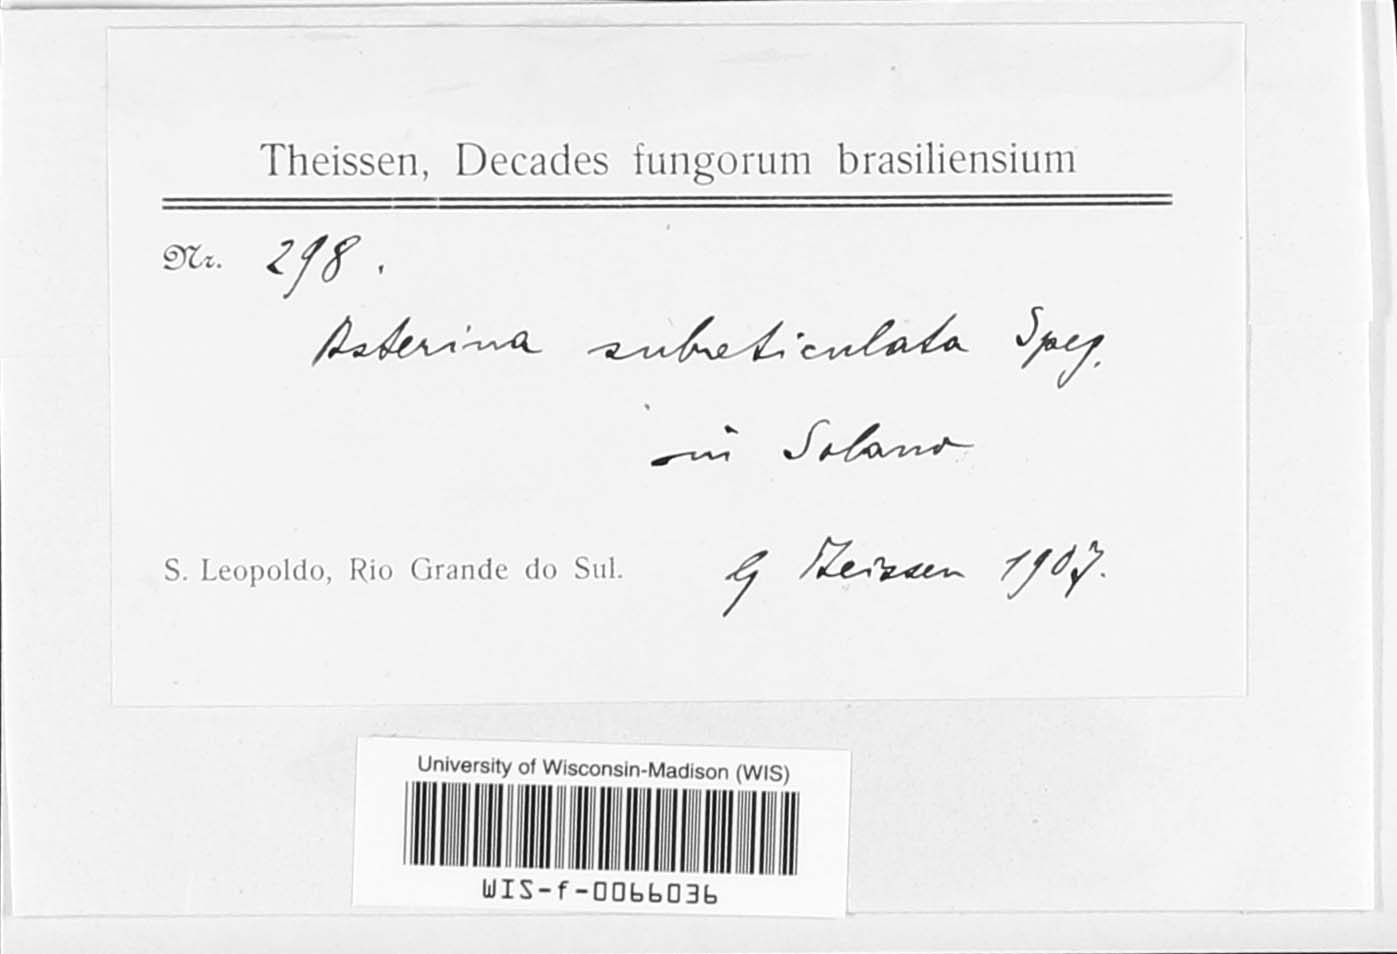 Theissen, Decades fungorum brasiliensium
Nr. 298.
Asterina subreticulata Speg.
in Solano
S. Leopoldo, Rio Grande do Sul.
G Theissen 1907.
University of Wisconsin-Madison (WIS)
WIS-f-0066036